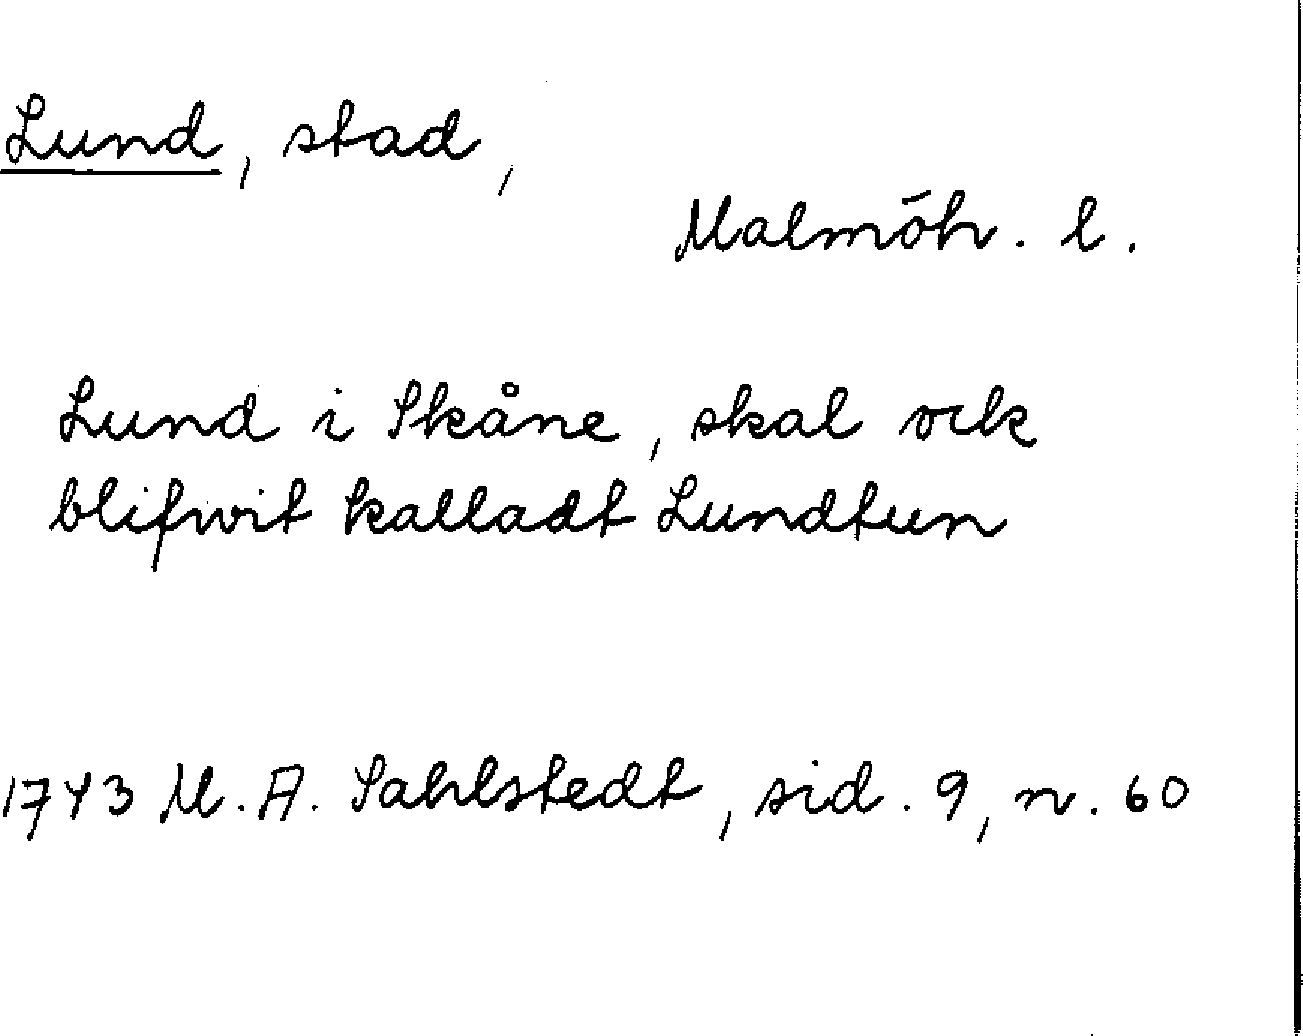 Lund, stad,
Malmöh. l.
Lund i Skåne, skal ock
blifwit kalladt Lundtun
1743 M. A. Sahlstedt, sid. 9, n. 60